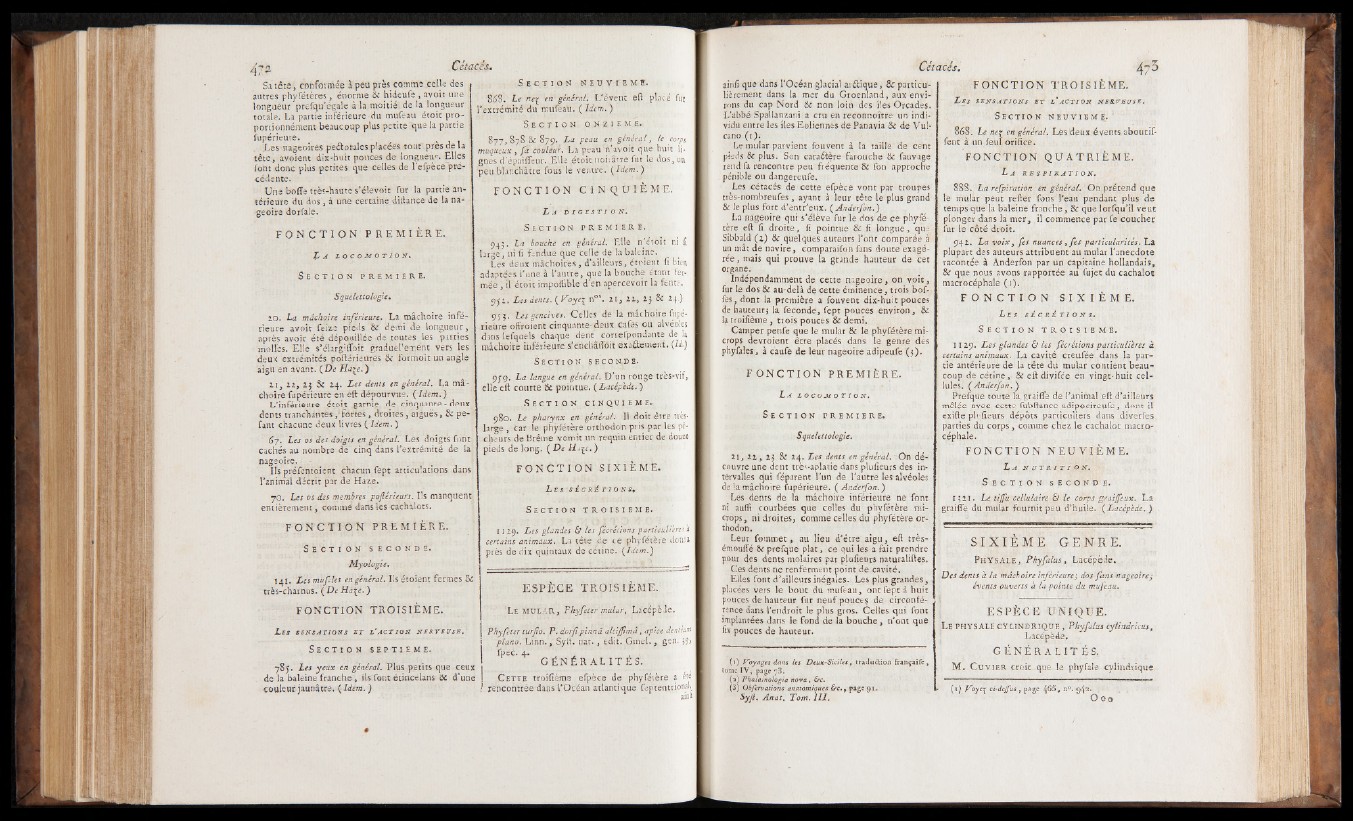 472
Cétacés.
Sa tête, conformée à peu près comme celle des
autres phyſétères, énorme & hideuſe, avoit une
longueur preſqu'égale à la moitié de la longueur
totale. La partie inférieure du muſeau étoit pro-
portionnément beaucoup plus petite que la partie
ſupérieure.
Les nageoires pectorales placées tout près de la
tête, avoient dix-huit pouces de longueur. Elles
ſont donc plus petites que celles de l'eſpèce pré-
cédente.
Une boſſe très-haute s'élevoit ſur la partie an-
térieure du dos, à une certaine diſtance de la na-
geoire dorſale.
FONCTION PREMIÈRE.
LA LOCOMOTION.
SECTION PREMIERE.
Squelettologie.
20. La mâchoire inférieure. La mâchoire infé-
rieure avoit ſeize pieds & demi de longueur,
après avoir été dépouillée de toutes les parties
molles. Elle s'élargiſſoit graduellement vers les
deux extrémités poſtérieures & formoit un angle
aigu en avant. (De Haze.)
21, 22, 23 & 24. Les dents en général. La mâ-
choire ſupérieure en eſt dépourvue. (Idem.)
L'inférieure étoit garnie de cinquante-deux
dents tranchantes, fortes, droites, aiguës, & pe-
ſant chacune deux livres (Idem.)
67. Les os des doigts en général. Les doigts ſont
cachés au nombre de cinq dans l'extrémité de la
nageoire.
Ils préſentoient chacun ſept articulations dans
l'animal décrit par de Haze.
70. Les os des membres poſtérieurs. Ils manquent
entièrement, comme dans les cachalots.
FONCTION PREMIÈRE.
SECTION SECONDE.
Myologie.
141. Les muſcles en général. Ils étoient fermes &
très-charnus. (De Haze.)
FONCTION TROISIÈME.
LES SENSATIONS ET L'ACTION NERVEUSE.
SECTION SEPTIEME.
785. Les yeux en général. Plus petits que ceux
de la baleine franche, ils ſont étincelans & d'une
couleur jaunâtre. (Idem.)
SECTION NEUVIEME.
868. Le nez en général. L'évent eſt placé ſur
l'extrémité du muſeau. (Idem.)
SECTION ONZIEME.
877, 878 & 879. La peau en général, le corps
muqueux, ſa couleur. La peau n'avoit que huit li-
gnes d'épaiſſeur. Elle étoit noirâtre ſur le dos, un
peu blanchâtre ſous le ventre. (Idem.)
FONCTION CINQUIÈME.
LA DIGESTION.
SECTION PREMIERE.
943. La bouche en général. Elle n'étoit ni ſi
large, ni ſi fendue que celle de la baleine.
Les deux mâchoires, d'ailleurs, étoient ſi bien
adaptées l'une à l'autre, que la bouche étant fer-
mée, il étoit impoſſible d'en apercevoir la fente.
952. Les dents. (Voyez nos. 21, 22, 23 & 24.)
953. Les gencives. Celles de la mâchoire ſupé-
rieure offroient cinquante-deux caſes ou alvéoles
dans leſquels chaque dent correſpondante de la
mâchoire inférieure s'enchâſſoit exactement. (Id.)
SECTION SECONDE.
959. La langue en général. D'un rouge très-vif,
elle eſt courte & pointue. (Lacépède.)
SECTION CINQUIEME.
980. Le pharynx en général. Il doit être très-
large, car le phyſétère orthodon pris par les pê-
cheurs de Brême vomit un requin entier de douze
pieds de long. (De Haze.)
FONCTION SIXIÈME.
LES SÉCRÉTIONS.
SECTION TROISIEME.
1129. Les glandes & les ſécrétions particulières à
certains animaux. La tête de ce phyſétère donna
près de dix quintaux de cétine. (Idem.)
ESPÈCE TROISIÈME.
LE MULAR, Phyſeter mular, Lacépède.
Phyſeter turſio. P. dorſi pinnâ altiſſimâ, apice dentium
plano. Linn., Syſt. nat., édit. Gmel., gen. 38,
ſpec. 4.
GÉNÉRALITÉS.
CETTE troiſième eſpèce de phyſétère a été
rencontrée dans l'Océan atlantique ſeptentrional,
ainſi
Cétacés.
473
ainſi que dans l'Océan glacial arctique, & particu-
lièrement dans la mer du Groenland, aux envi-
rons du cap Nord & non loin des îles Orcades.
L'abbé Spallanzani a cru en reconnoître un indi-
vidu entre les îles Eoliennes de Panavia & de Vul-
cano (1).
Le mular parvient ſouvent à la taille de cent
pieds & plus. Son caractère farouche & ſauvage
rend ſa rencontre peu fréquente & ſon approche
pénible ou dangereuſe.
Les cétacés de cette eſpèce vont par troupes
très-nombreuſes, ayant à leur tête le plus grand
& le plus fort d'entr'eux. (Anderſon.)
La nageoire qui s'élève ſur le dos de ce phyſé
tère eſt ſi droite, ſi pointue & ſi longue, que
Sibbald (2) & quelques auteurs l'ont comparée à
un mât de navire, comparaiſon ſans doute exagé-
rée, mais qui prouve la grande hauteur de cet
organe.
Indépendamment de cette nageoire, on voit,
ſur le dos & au-delà de cette éminence, trois boſ-
ſes, dont la première a ſouvent dix-huit pouces
de hauteur; la ſeconde, ſept pouces environ, &
la troiſième, trois pouces & demi.
Camper penſe que le mular & le phyſétère mi-
crops devroient être placés dans le genre des
phyſales, à cauſe de leur nageoire adipeuſe (3).
FONCTION PREMIÈRE.
LA LOCOMOTION.
SECTION PREMIERE.
Squelettologie.
21, 22, 23 & 24. Les dents en général. On dé-
couvre une dent très-aplatie dans pluſieurs des in-
tervalles qui ſéparent l'un de l'autre les alvéoles
de la mâchoire ſupérieure. (Anderſon.)
Les dents de la mâchoire inférieure ne ſont
ni auſſi courbées que celles du phyſétère mi-
crops, ni droites, comme celles du phyſétère or-
thodon.
Leur ſommet, au lieu d'être aigu, eſt très-
émouſſé & preſque plat, ce qui les a fait prendre
pour des dents molaires par pluſieurs naturaliſtes.
Ces dents ne renferment point de cavité.
Elles ſont d'ailleurs inégales. Les plus grandes,
placées vers le bout du muſeau, ont ſept à huit
pouces de hauteur ſur neuf pouces de circonfé-
rence dans l'endroit le plus gros. Celles qui ſont
implantées dans le fond de la bouche, n'ont que
ſix pouces de hauteur.
(1) Voyages dans les Deux-Siciles, traduction françaiſe,
tome IV, page 78.
(2) Phalainologia nova, &c.
(3) Obſervations anatomiques &c., page 91.
Syſt. Anat. Tom. III.
FONCTION TROISIÈME.
LES SENSATIONS ET L'ACTION NERVEUSE.
SECTION NEUVIEME.
868. Le nez en général. Les deux évents aboutiſ-
ſent à un ſeul orifice.
FONCTION QUATRIÈME.
LA RESPIRATION.
888. La reſpiration en général. On prétend que
le mular peut reſter ſous l'eau pendant plus de
temps que la baleine franche, & que lorſqu'il veut
plonger dans la mer, il commence par ſe coucher
ſur le côté droit.
942. La voix, ſes nuances, ſes particularités. La
plupart des auteurs attribuent au mular l'anecdote
racontée à Anderſon par un capitaine hollandais,
& que nous avons rapportée au ſujet du cachalot
macrocéphale (1).
FONCTION SIXIÈME.
LES SÉCRÉTIONS.
SECTION TROISIEME.
1129. Les glandes & les ſécrétions particulières à
certains animaux. La cavité creuſée dans la par-
tie antérieure de la tête du mular contient beau-
coup de cétine, & eſt diviſée en vingt-huit cel-
lules. (Anderſon.)
Preſque toute la graiſſe de l'animal eſt d'ailleurs
mêlée avec cette ſubſtance adipocireuſe, dont il
exiſte pluſieurs dépôts particuliers dans diverſes
parties du corps, comme chez le cachalot macro-
céphale.
FONCTION NEUVIÈME.
LA NUTRITION.
SECTION SECONDE.
1121. Le tiſſu cellulaire & le corps graiſſeux. La
graiſſe du mular fournit peu d'huile. (Lacépède.)
SIXIÈME GENRE.
PHYSALE, Phyſalus, Lacépède.
Des dents à la mâchoire inférieure; dos ſans nageoire;
évents ouverts à la pointe du muſeau.
ESPÈCE UNIQUE.
LE PHYSALE CYLINDRIQUE, Phyſalus cylindricus,
Lacépède.
GÉNÉRALITÉS.
M. CUVIER croit que le phyſale cylindrique
(1) Voyez ci-deſſus, page 466, no. 942.
Ooo